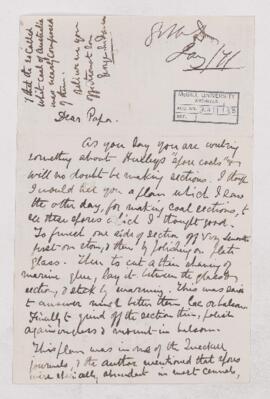 that the so called
white coal of Australia
was nearly composed
of them.
Believe me your
affectionate Son
George M Dawson
Jan/71
McGILL UNIVERSITY
ARCHIVES
ACC. NO.
REF.
Dear Papa.
As you say you are writing
something about Huxleys "spore coals" &
will no doubt be making sections, I thought
I would tell you a plan which I saw
the other day, for making coal sections, to
see these spores which I thought good.
To grind one side of section off very smooth
first on stone, & then by polishing on plate
glass. Then to cut a thin shaving of
marine glue, lay it between the glass &
section, & stick by warming. This was said
to answer much better than lac or balsam.
Finally to grind off the section thin, polish
again on glass & mount in balsam.
This plan was in one of the Quekett
journals, & the author mentioned that spores
were specially abundant in most cannels,